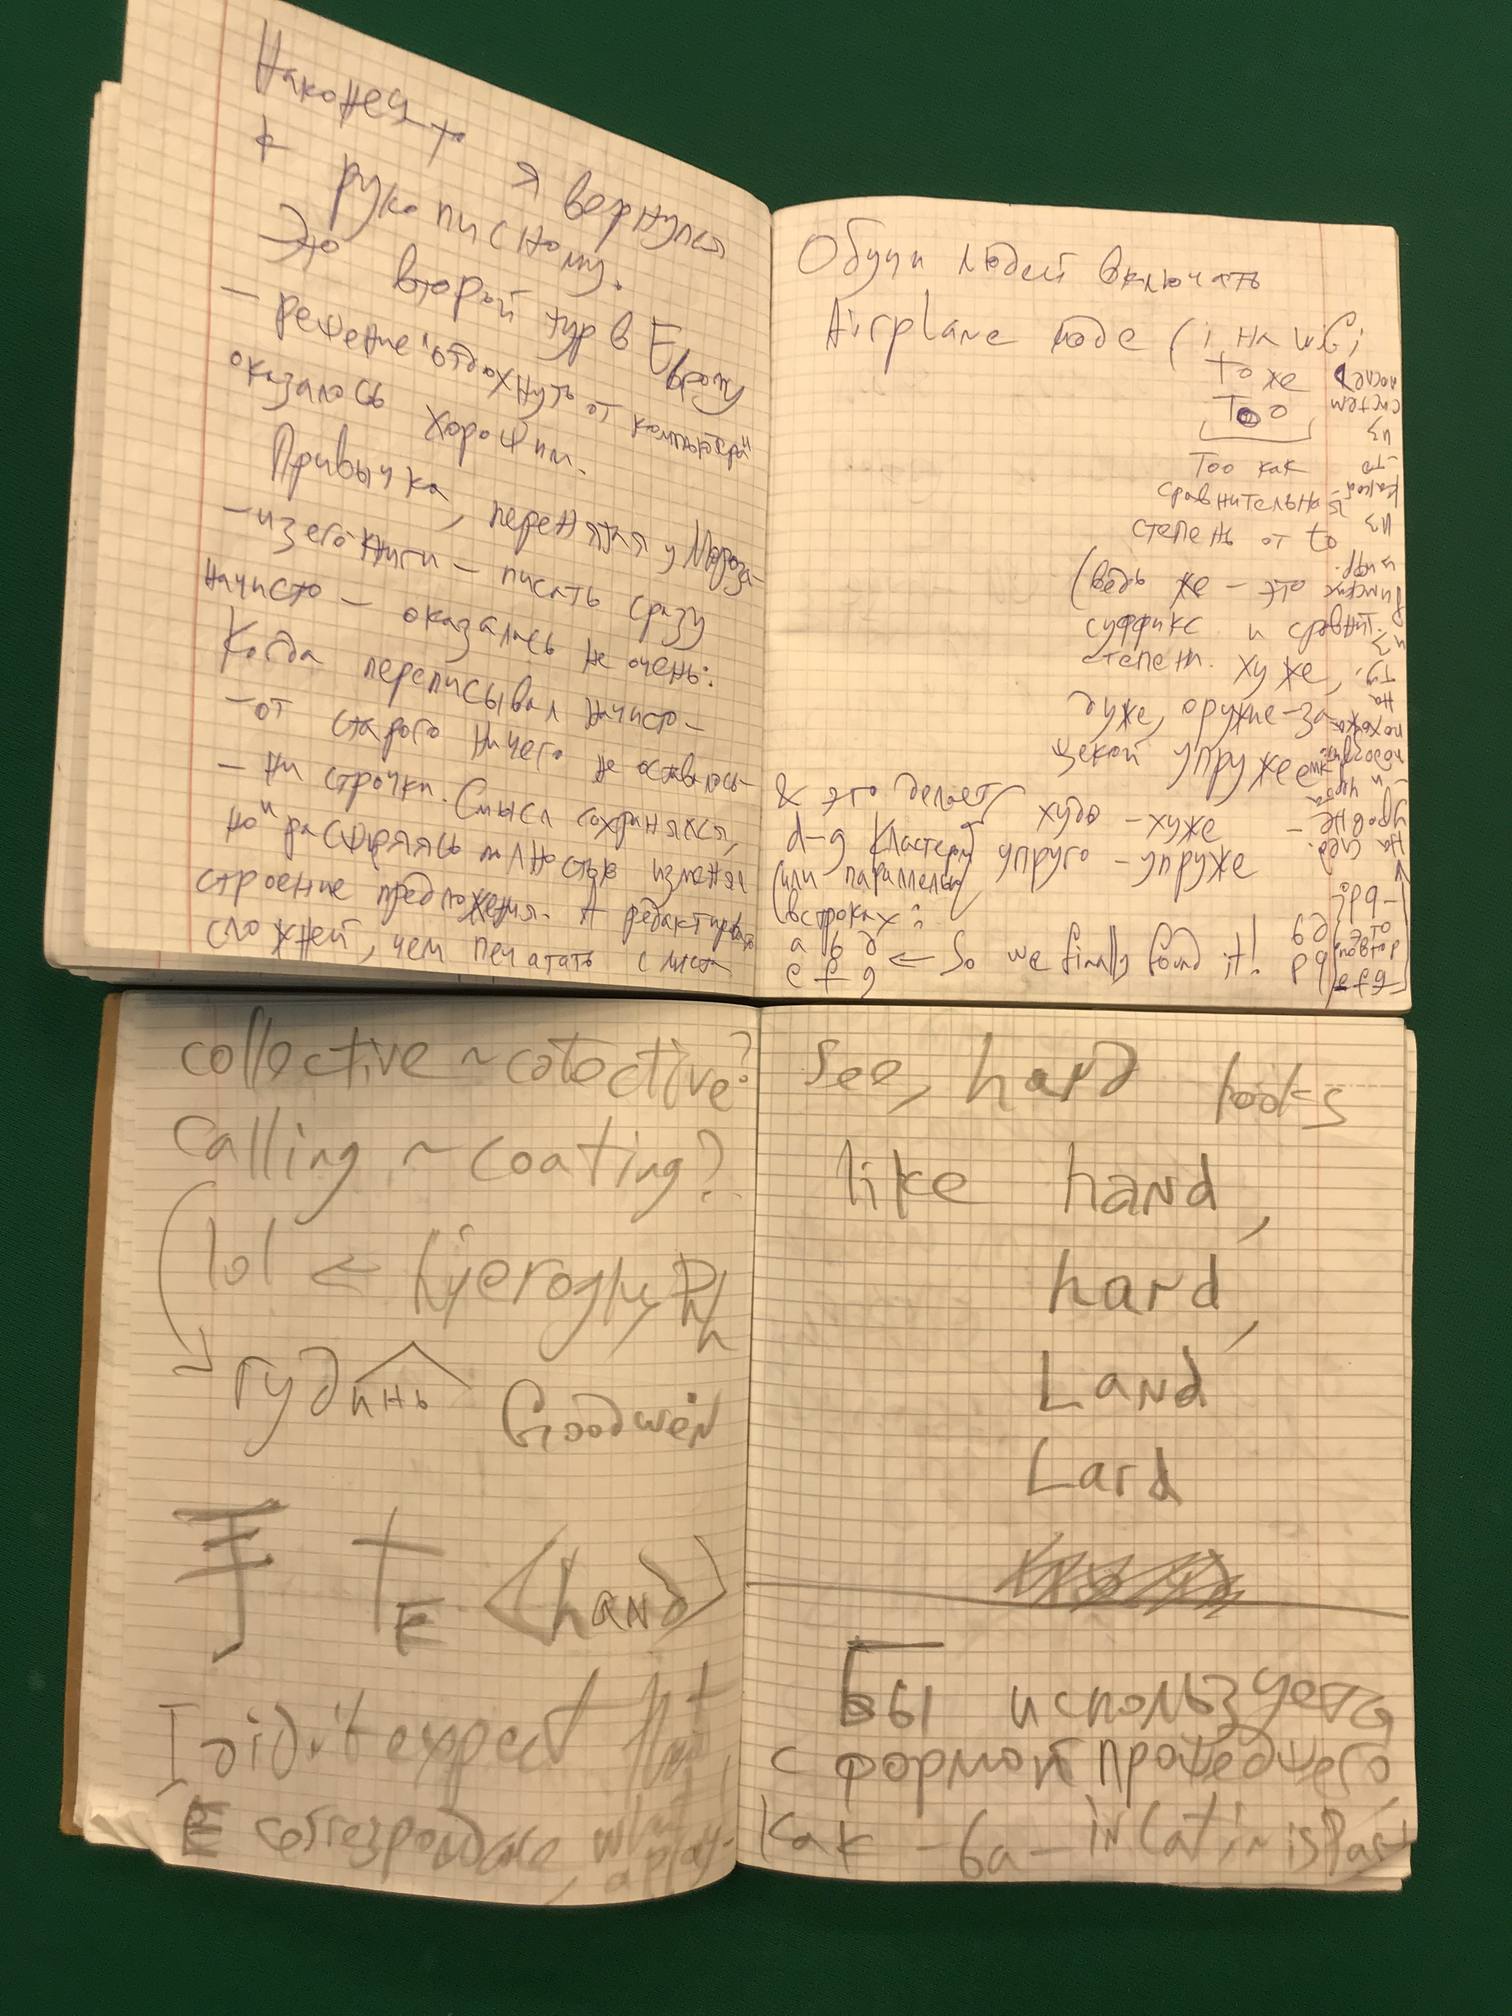 Наконец-то я вернулся
к рукописному.
Это второй тур в Европу
– решение "отдохнуть от компьютера"
оказалось хорошим.
Привычка, перенятая у Мороза-
– из его книги – писать сразу
начисто – оказалась не очень:
Когда переписывал начисто –
– от старого ничего не оставалось
– ни строчки. Смысл сохранялся,
но и расширяясь полностью изменял
строение предложения. А редактировать
сложней, чем печатать с листа
Обучи людей включать
Airplane mode (i на wifi
То же
Too
Too как
сравнительная
степень от to
(ведь же – это
суффикс и сравнит.
степени. хуже,
туже, оружие – за
щекой упружее
& это делает
худо – хуже
d–g кластер
упруго – упруже
или параллель
в строках:
a b d
e f 6 ← So we finally found it!
после
систем
из
-то
какой
из
римских
из
ту.
на
похоже
и
уровне
на след.
collective ~ cotective?
Calling ~ coating?
lol ← hjeroglyph
гудинь Goodwin
手 тE <hand>
I didn't expect that
E correspondance, what
a play-
See, hard looks
like hand,
hard,
Land
Lard
Бы используется
с формой прошедшего,
как -ba- in Latin is Past